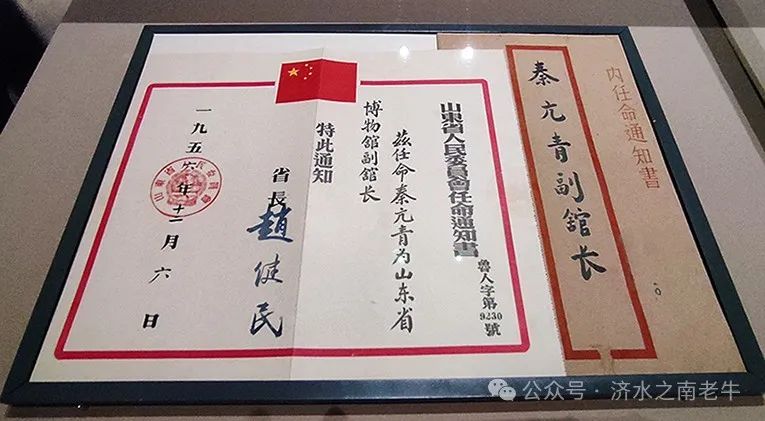 内任命通知書
秦亢青副館长
山東省人民委員會任命通知書
魯人字第9230號
茲任命秦亢青为山东省
博物館副館长
特此通知
省長
趙健民
一九五六年十一月六日
山東省人民委員會
公众号·济水之南老牛